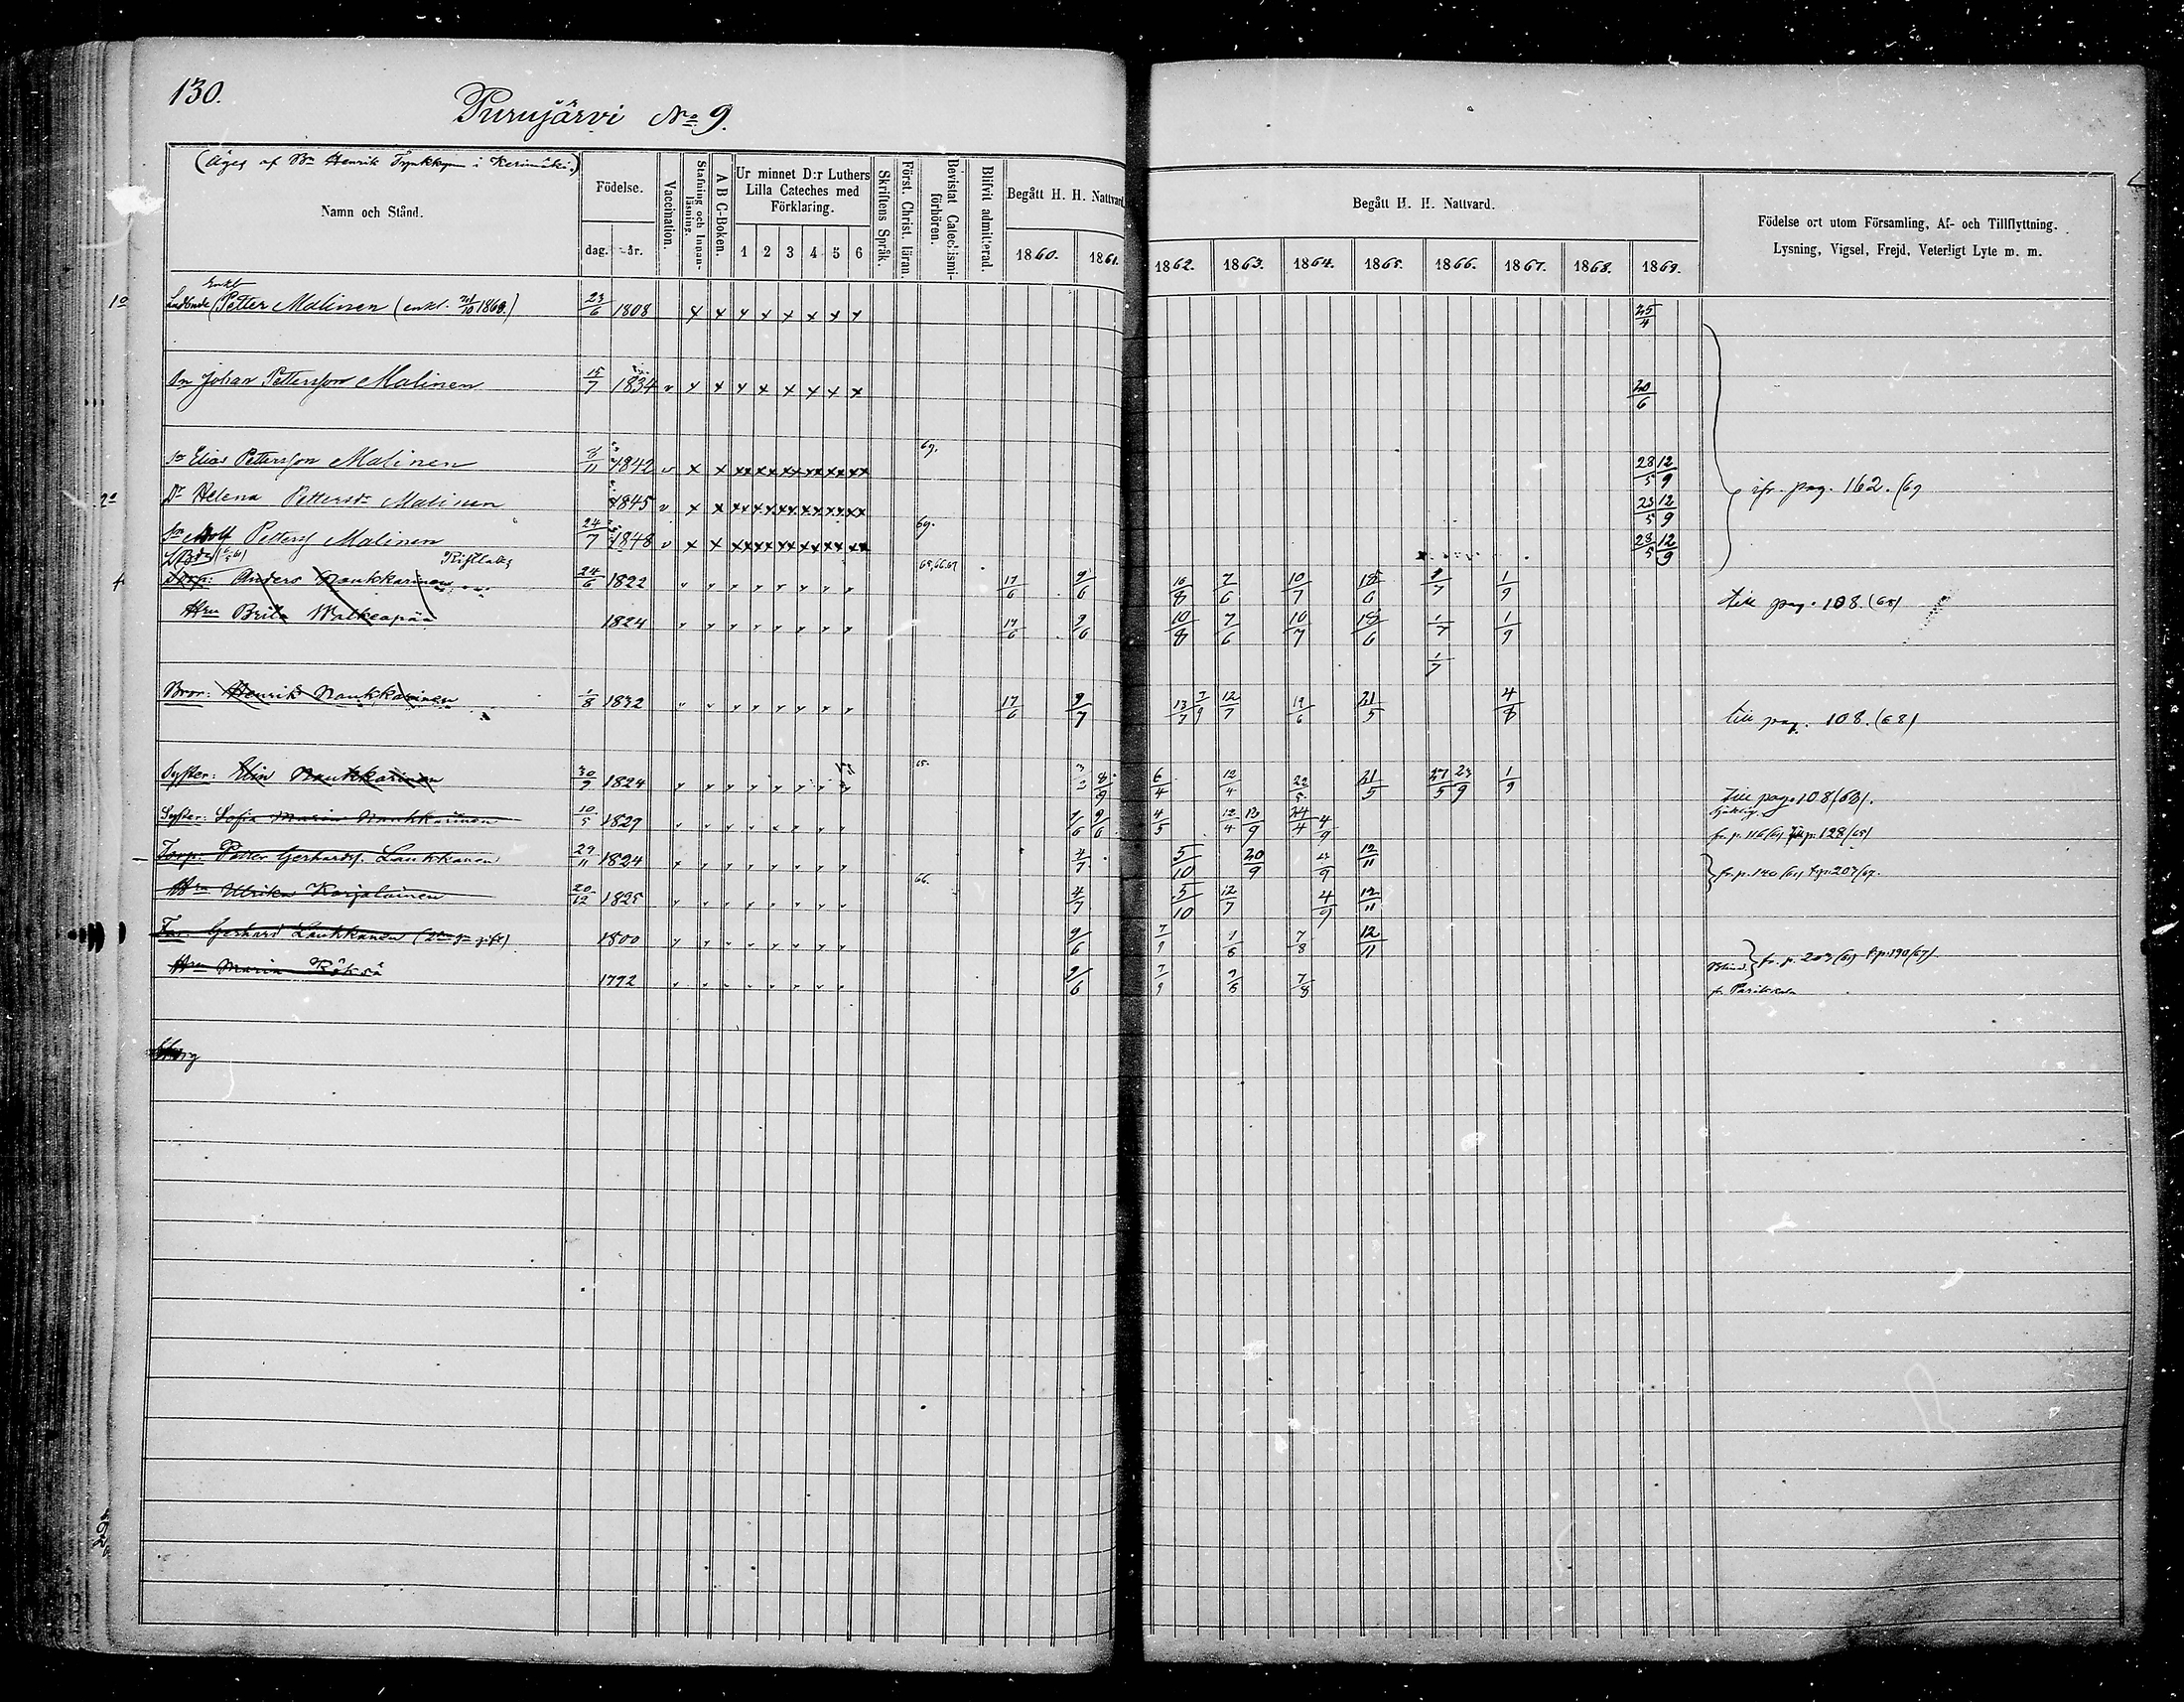 130.
Purujärvi No 9.
(Äges af Bn Henrik Tynkkynen i Kerimäki.)
Namn och Stånd.
Födelse.
dag. år.
Vaccination.
Stafning och Innanläsning.
A B C-Boken.
Ur minnet D:r Luthers Lilla Cateches med Förklaring.
1 2 3 4 5 6
Skriftens Språk.
Först. Christ. läran.
Bevistat Catechismi-förhören.
Blifvit admitterad.
Begått H. H. Nattvard
1860. 1861.
Begått H. H. Nattvard.
1862. 1863. 1864. 1865. 1866. 1867. 1868. 1869.
Födelse ort utom Församling, Af- och Tillflyttning.
Lysning, Vigsel, Frejd, Veterligt Lyte m. m.
Enkl
1o Landbonde Petter Malinen (enkl. 21/10 1868.) 23/6 1808 x x x x x x x x 25/4
Sn Johan Pettersson Malinen 15/7 1834 v x x x x x x x x 20/6
Sn Elias Pettersson Malinen 3/11 1842 v x x xx xx xx xx xx xx 69. 28/5 12/9
2o Dr Helena Pettersdr Malinen 1845 v x x xx xx xx xx xx xx 23/5 12/9
ifr. pag. 162. (69
Sn Adolf Petterss Malinen 24/7 1848 v x x xx xx xx xx xx xx 69. 28/5 12/9
Torp: Anders Naukkarinen 24/6 1822 65,66,67 17/6 9/6 10/8 7/6 10/7 18/6 9/7 1/9 till pag. 108. (68)
Hru Brita Walkeapää 1824 17/6 9/6 10/8 7/6 10/7 18/6 1/7 1/9
1/7
Bror: Henrik Naukkarinen 1/8 1832 17/6 9/7 13/7 7/9 12/7 12/6 21/5 4/8 till pag. 108. (68)
Syster: Elin Naukkarinen 30/9 1824 65. 8/9 6/4 12/4 22/5 21/5 27/5 23/9 1/9 till pag. 108 (68).
Syster: Sofia Maria Naukkarinen 10/5 1829 9/6 9/6 4/5 12/4 13/9 24/4 4/9 fr. p. 116 (61) till p. 128 (65)
Torp: Petter Gerhardss. Laukkanen 29/11 1824 4/7 5/10 20/9 4/9 12/11 fr. p. 140 (61) t. p. 207 (67.
Hru Ulrika Karjalainen 20/12 1825 66. 4/7 5/10 12/7 4/9 12/11
Far: Gerhard Laukkanen (2dra ggn gift) 1800 9/6 7/9 1/6 7/8 12/11
Blind. fr. p. 203 (61) t. p. 190 (67).
Hru Maria Röksä 1772 9/6 7/9 7/6 7/8
fr Parikkala